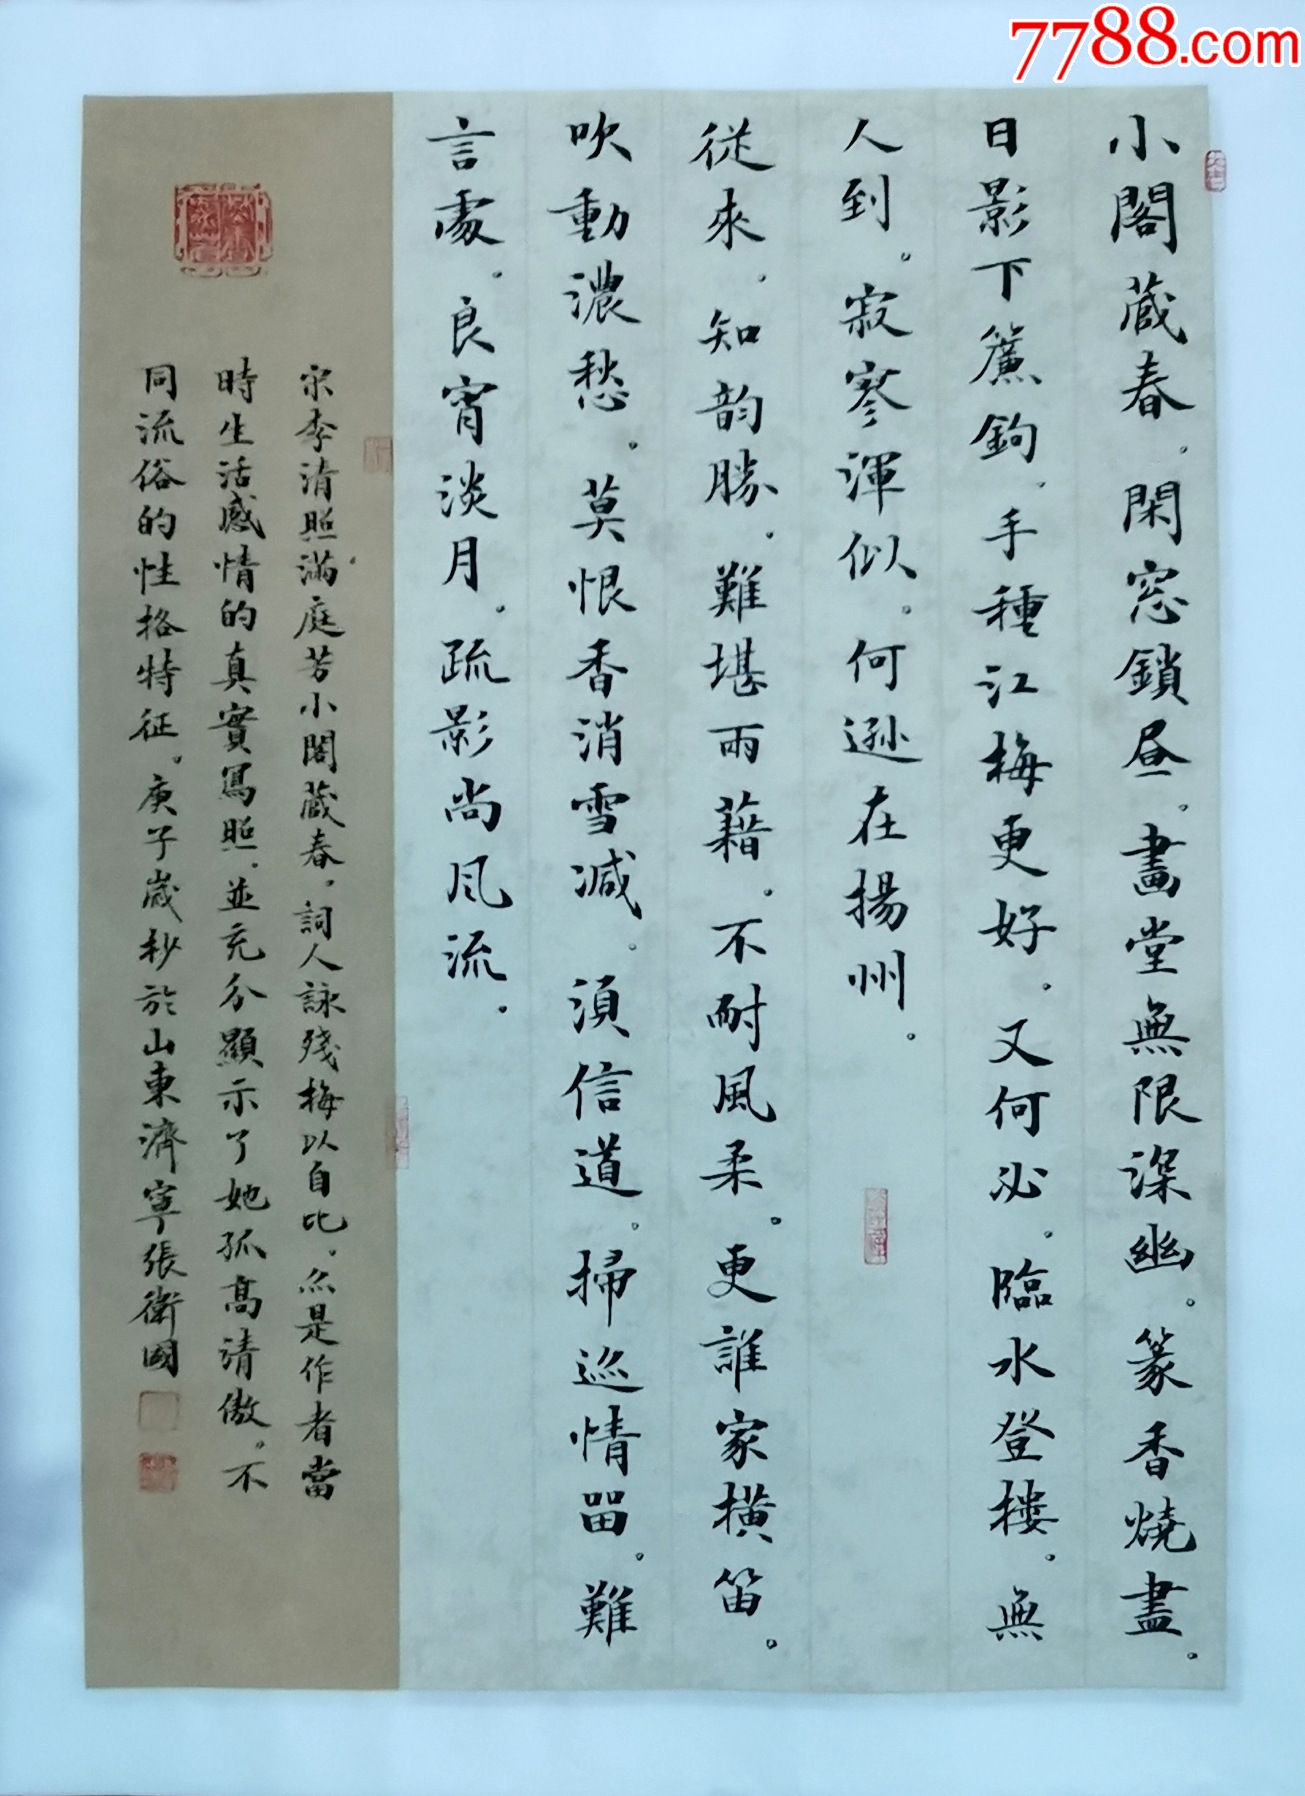 7788.com
小閣蔵春。閑窓鎖昼。畫堂無限深幽。篆香燒盡。
日影下簾鉤。手種江梅更好。又何必。臨水登樓。無
人到。寂寥渾似。何遜在揚州。
從來。知韵勝。難堪雨藉。不耐風柔。更誰家横笛。
吹動濃愁。莫恨香消雪減。須信道。掃迹情留。難
言處。良宵淡月。疏影尚风流。
宋李清照滿庭芳小閣蔵春。詞人詠殘梅以自比。亦是作者當
時生活感情的真實寫照。並充分顯示了她孤高清傲。不
同流俗的性格特征。庚子歲抄於山東濟寧張衛國